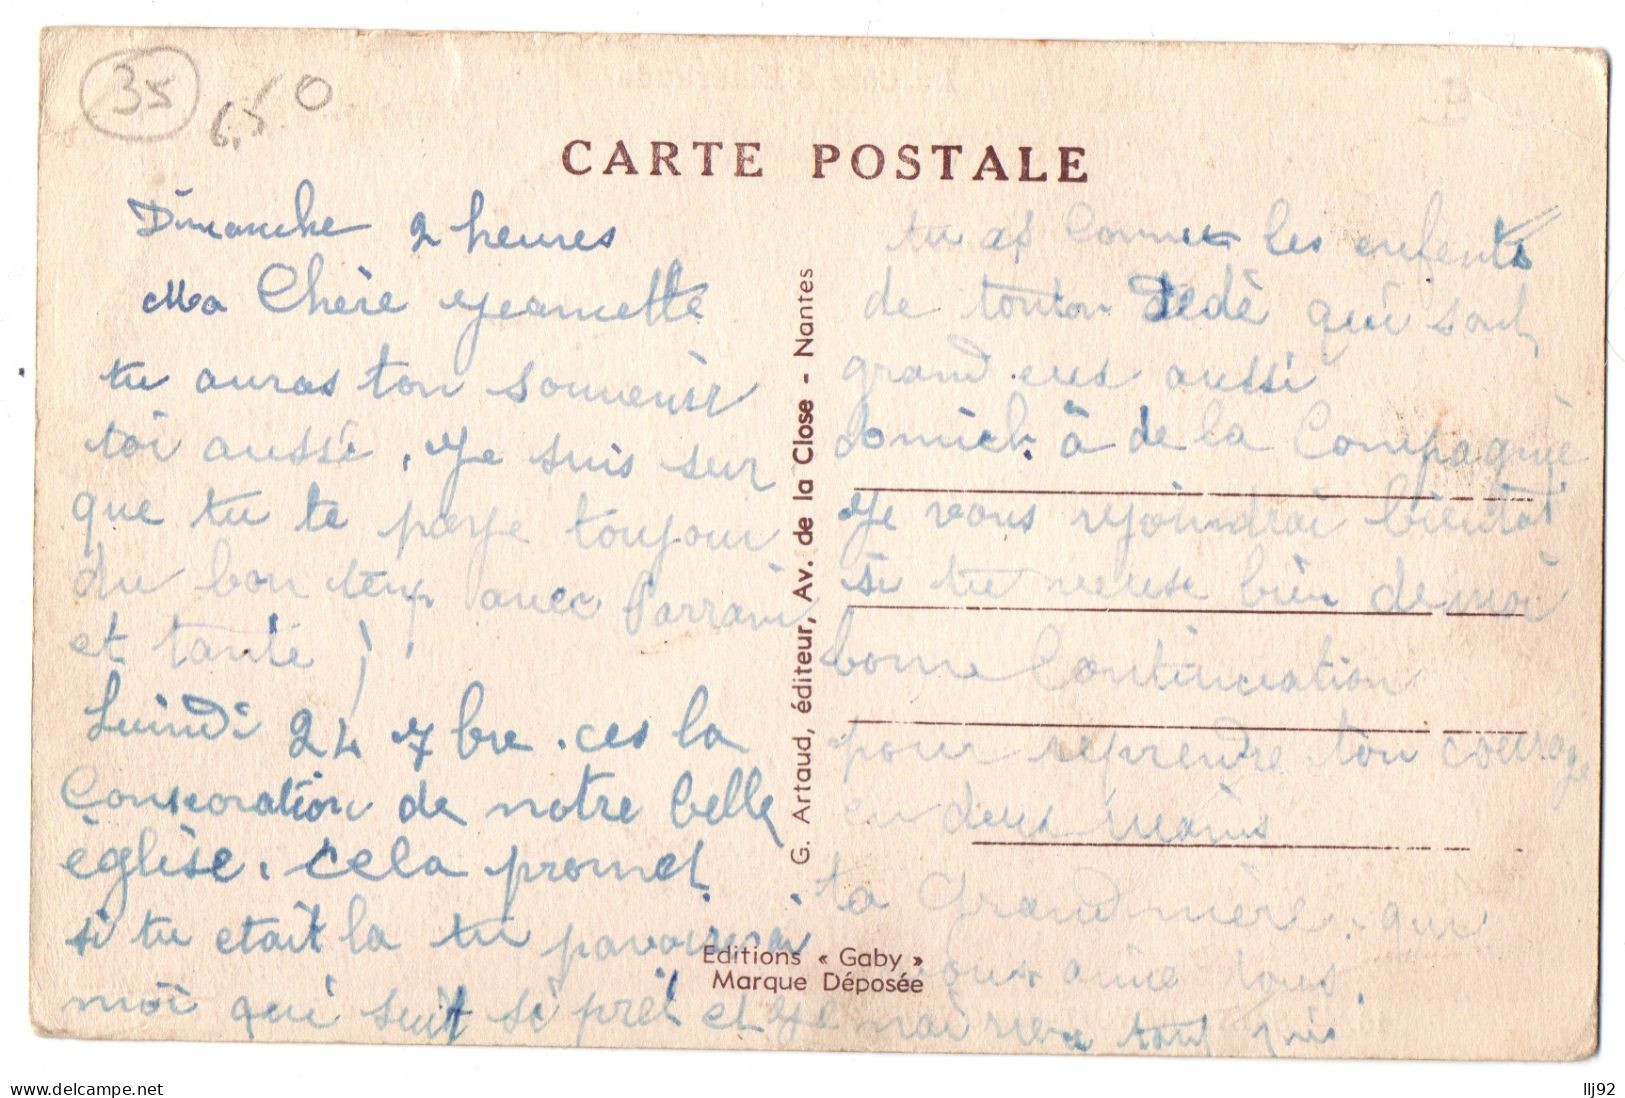 35
6.50
CARTE POSTALE
Dimanche 2 heures
Ma Chère Jeannette
tu auras ton souvenir
toi aussi. Je suis sur
que tu te paye toujour
du bon temp avec Parrain
et tante !
Luindi 24 7bre. ces la
Consecration de notre belle
èglise. cela promet.
si tu etait la tu
moi qui suit si prêt et je n'ai rien tout
G. Artaud, éditeur, Av. de la Close - Nantes
Editions « Gaby »
Marque Déposée
tu as Connu les enfents
de tonton Dédé qui sont
grand eus aussi
à de la Compagnie
Je vous rejoindrai bientot
si tu veuse bien de moi
bonne Continuation
pour reprendre ton courage
en deux mains
ta Grand mère. qui
vous aime tous.
www.delcampe.net
llj92